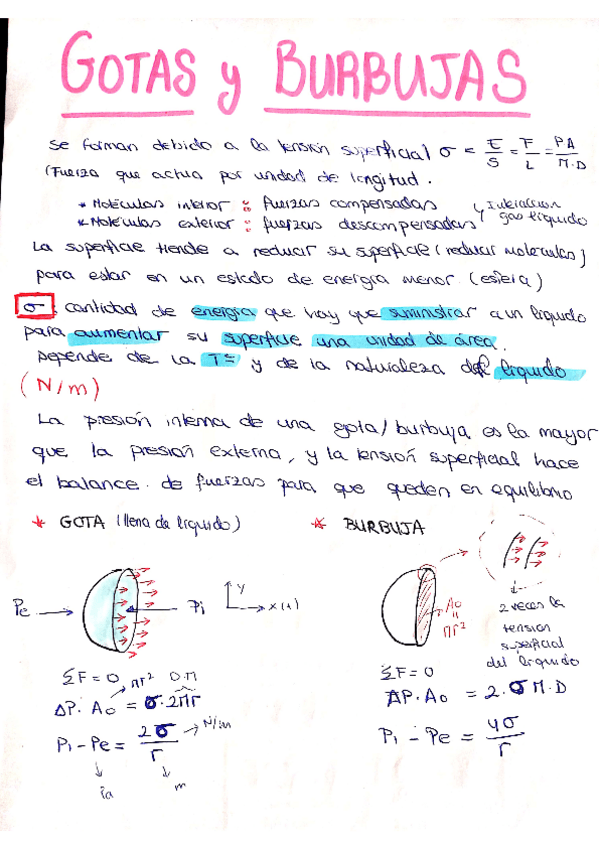 GOTAS y BURBUJAS
se forman debido a la tensión superficial σ = E/S = F/L = PA/Π.D
(Fuerza que actua por unidad de longitud.
* Moléculas interior :: fuerzas compensadas
* Moléculas exterior :: fuerzas descompensadas
Interaccion gas líquido
La superficie tiende a reducir su superficie (reducir moleculas)
para estar en un estado de energía menor (esfera)
σ cantidad de energia que hay que suministrar a un líquido
para aumentar su superficie una unidad de área.
Depende de la Tª y de la naturaleza del líquido
(N/m)
La presión interna de una gota/burbuja es la mayor
que la presión externa, y la tensión superficial hace
el balance de fuerzas para que queden en equilibrio
* GOTA (llena de líquido)
Pe
Pi
y
x (+)
ΣF = 0
Πr² D.Π
ΔP. A₀ = σ. 2Πr
Pi - Pe = 2σ/r
N/m
m
* BURBUJA
A₀
=
Πr²
2 veces la
tension
superficial
del líquido
ΣF = 0
ΔP. A₀ = 2. σ Π. D
Pi - Pe = 4σ/r